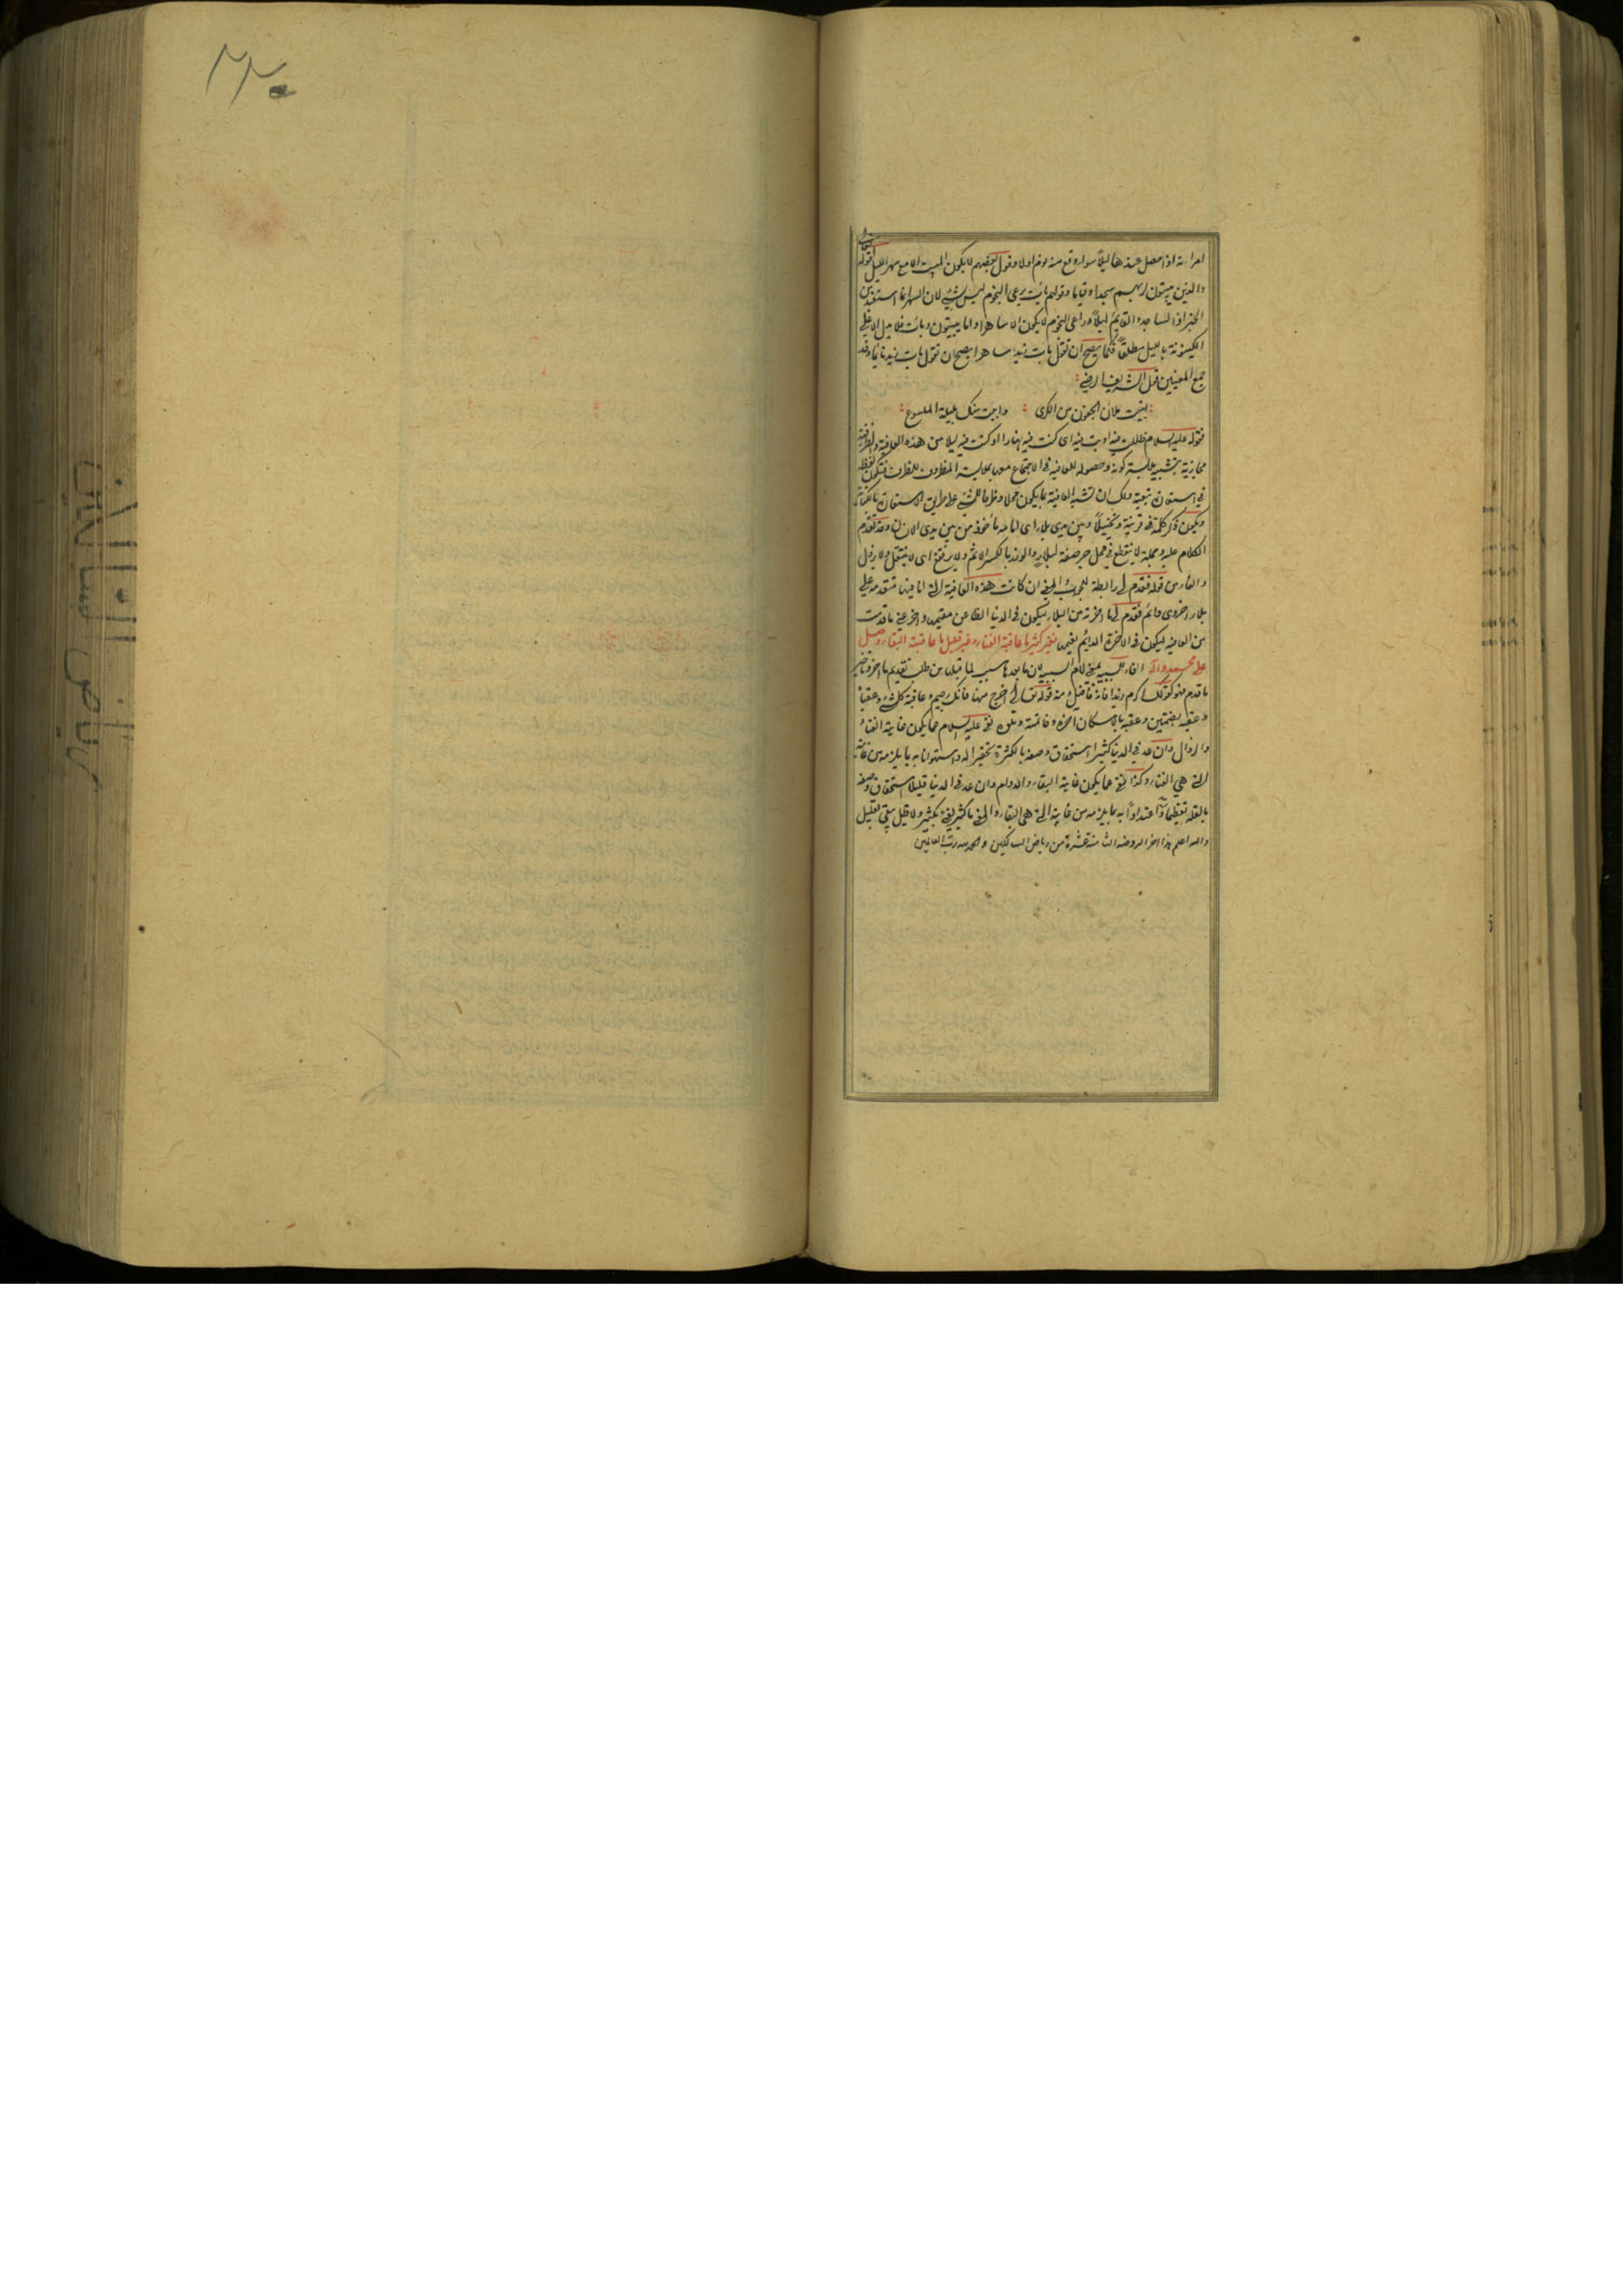 امراته اذا حصل عندها ليلاً سواء وقع منه نوم اولا وقول بعضهم لا يكون المبيت الا مع سهر الليل لقوله تعالى
والذين يبيتون لربهم سجدا وقياما وقولهم بات يرعى النجوم ليس بشئ لان السهر انما استفيد من
الخبر اذ الساجد والقايم ليلاً وراعى النجوم لا يكون الا ساهرا واما يبيتون وبات فلا يدل الا على
الكينونة بالليل مطلقاً فكما يصح ان تقول بات زيد ساهرا يصح ان تقول بات زيد نائما وقد
جمع المعنيين قول الشريف الرضى
ابيت ملآن الجفون من الكرى وابيت منك بليلة الملسوع
فقوله عليه السلام ظللت فيه او بت فيه اى كنت فيه نهارا او كنت فيه ليلا من هذه العافية والظرفية
مجازية بتشبيه ملابسة كونه وحصوله للعافية فى الاجتماع معها بملابسة المظروف للظرف فتكون لفظة
فى استعارة تبعية ولك ان تشبه العافية بما يكون محلا وظرفا للشئ على طريق الاستعارة بالكناية
ويكون ذكر كلمة فى قرينة وتخييلاً وبين يدى بلاء اى امامه مأخوذ من بين يدى الانسان وقد تقدم
الكلام عليه وجملة لا ينقطع فى محل جر صفة لبلاء والوزر بالكسر الاثم ولا يرتفع اى لا ينتقل ولا يزول
والفاء من قوله فقدم لى رابطة للجواب والمعنى ان كانت هذه العافية التى انا فيها متقدمة على
بلاء اخروى دائم فقدم لى ما اخرته من البلاء ليكون فى الدنيا الظاعن مقيمها واخر عنى ما قدمت
من العافية ليكون فى الاخرة الدائم نعيمها فغير كثير ما عاقبته الفناء وغير قليل ما عاقبته البقاء وصل
على محمد وآله الفاء للسببية بمعنى لام السببية لان ما بعدها سبب لما قبلها من طلب تقديم ما اخر وتاخير
ما قدم فهو كقولك اكرم زيدا فانه فاضل ومنه قوله تعالى اخرج منها فانك رجيم وعاقبة كل شئ وعقباه
وعقبه بضمتين وعقبه بالاسكان اخره وخاتمته ونفى عليه السلام عما يكون غايته الفناء
والزوال وان عد فى الدنيا كثيرا استحقاق وصفه بالكثرة تحقيرا له واستهوانا به بما يلزمه من غايته
التى هى الفناء وكذا نفى عما يكون غايته البقاء والدوام وان عد فى الدنيا قليلا استحقاق وصفه
بالقلة تعظيما له واعتدادا به بما يلزمه من غايته التى هى البقاء والمعنى ما كثير يفنى بكثير ولا قليل يبقى بقليل
والله اعلم هذا اخر الروضه الثامنة عشرة من رياض السالكين والحمد لله رب العالمين